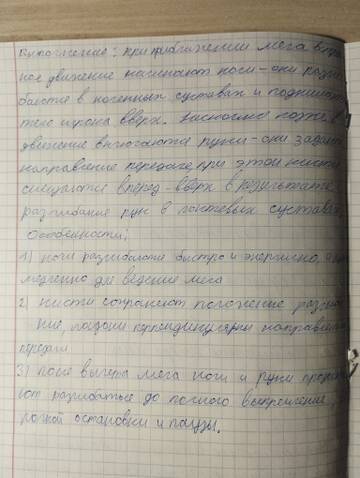 Выполнение: при приближении мяча встре
ное движение начинают ноги - они разги
баются в коленных суставах и поднимают
тело игрока вверх. Несколько позже в
движение включаются руки - они задают
направление передаче, при этом кисти
смещаются вперед - вверх в результате
разгибание рук в локтевых суставах
Особенности:
1) ноги разгибаются быстро и энергично, а
медленно для ведение мяча
2) кисти сохраняют положение разгиба
ние, ладони перпендикулярны направлению
передачи
3) после вылета мяча ноги и руки продолжа
ют разгибаться до полного выпрямление,
полной остановки и паузы.